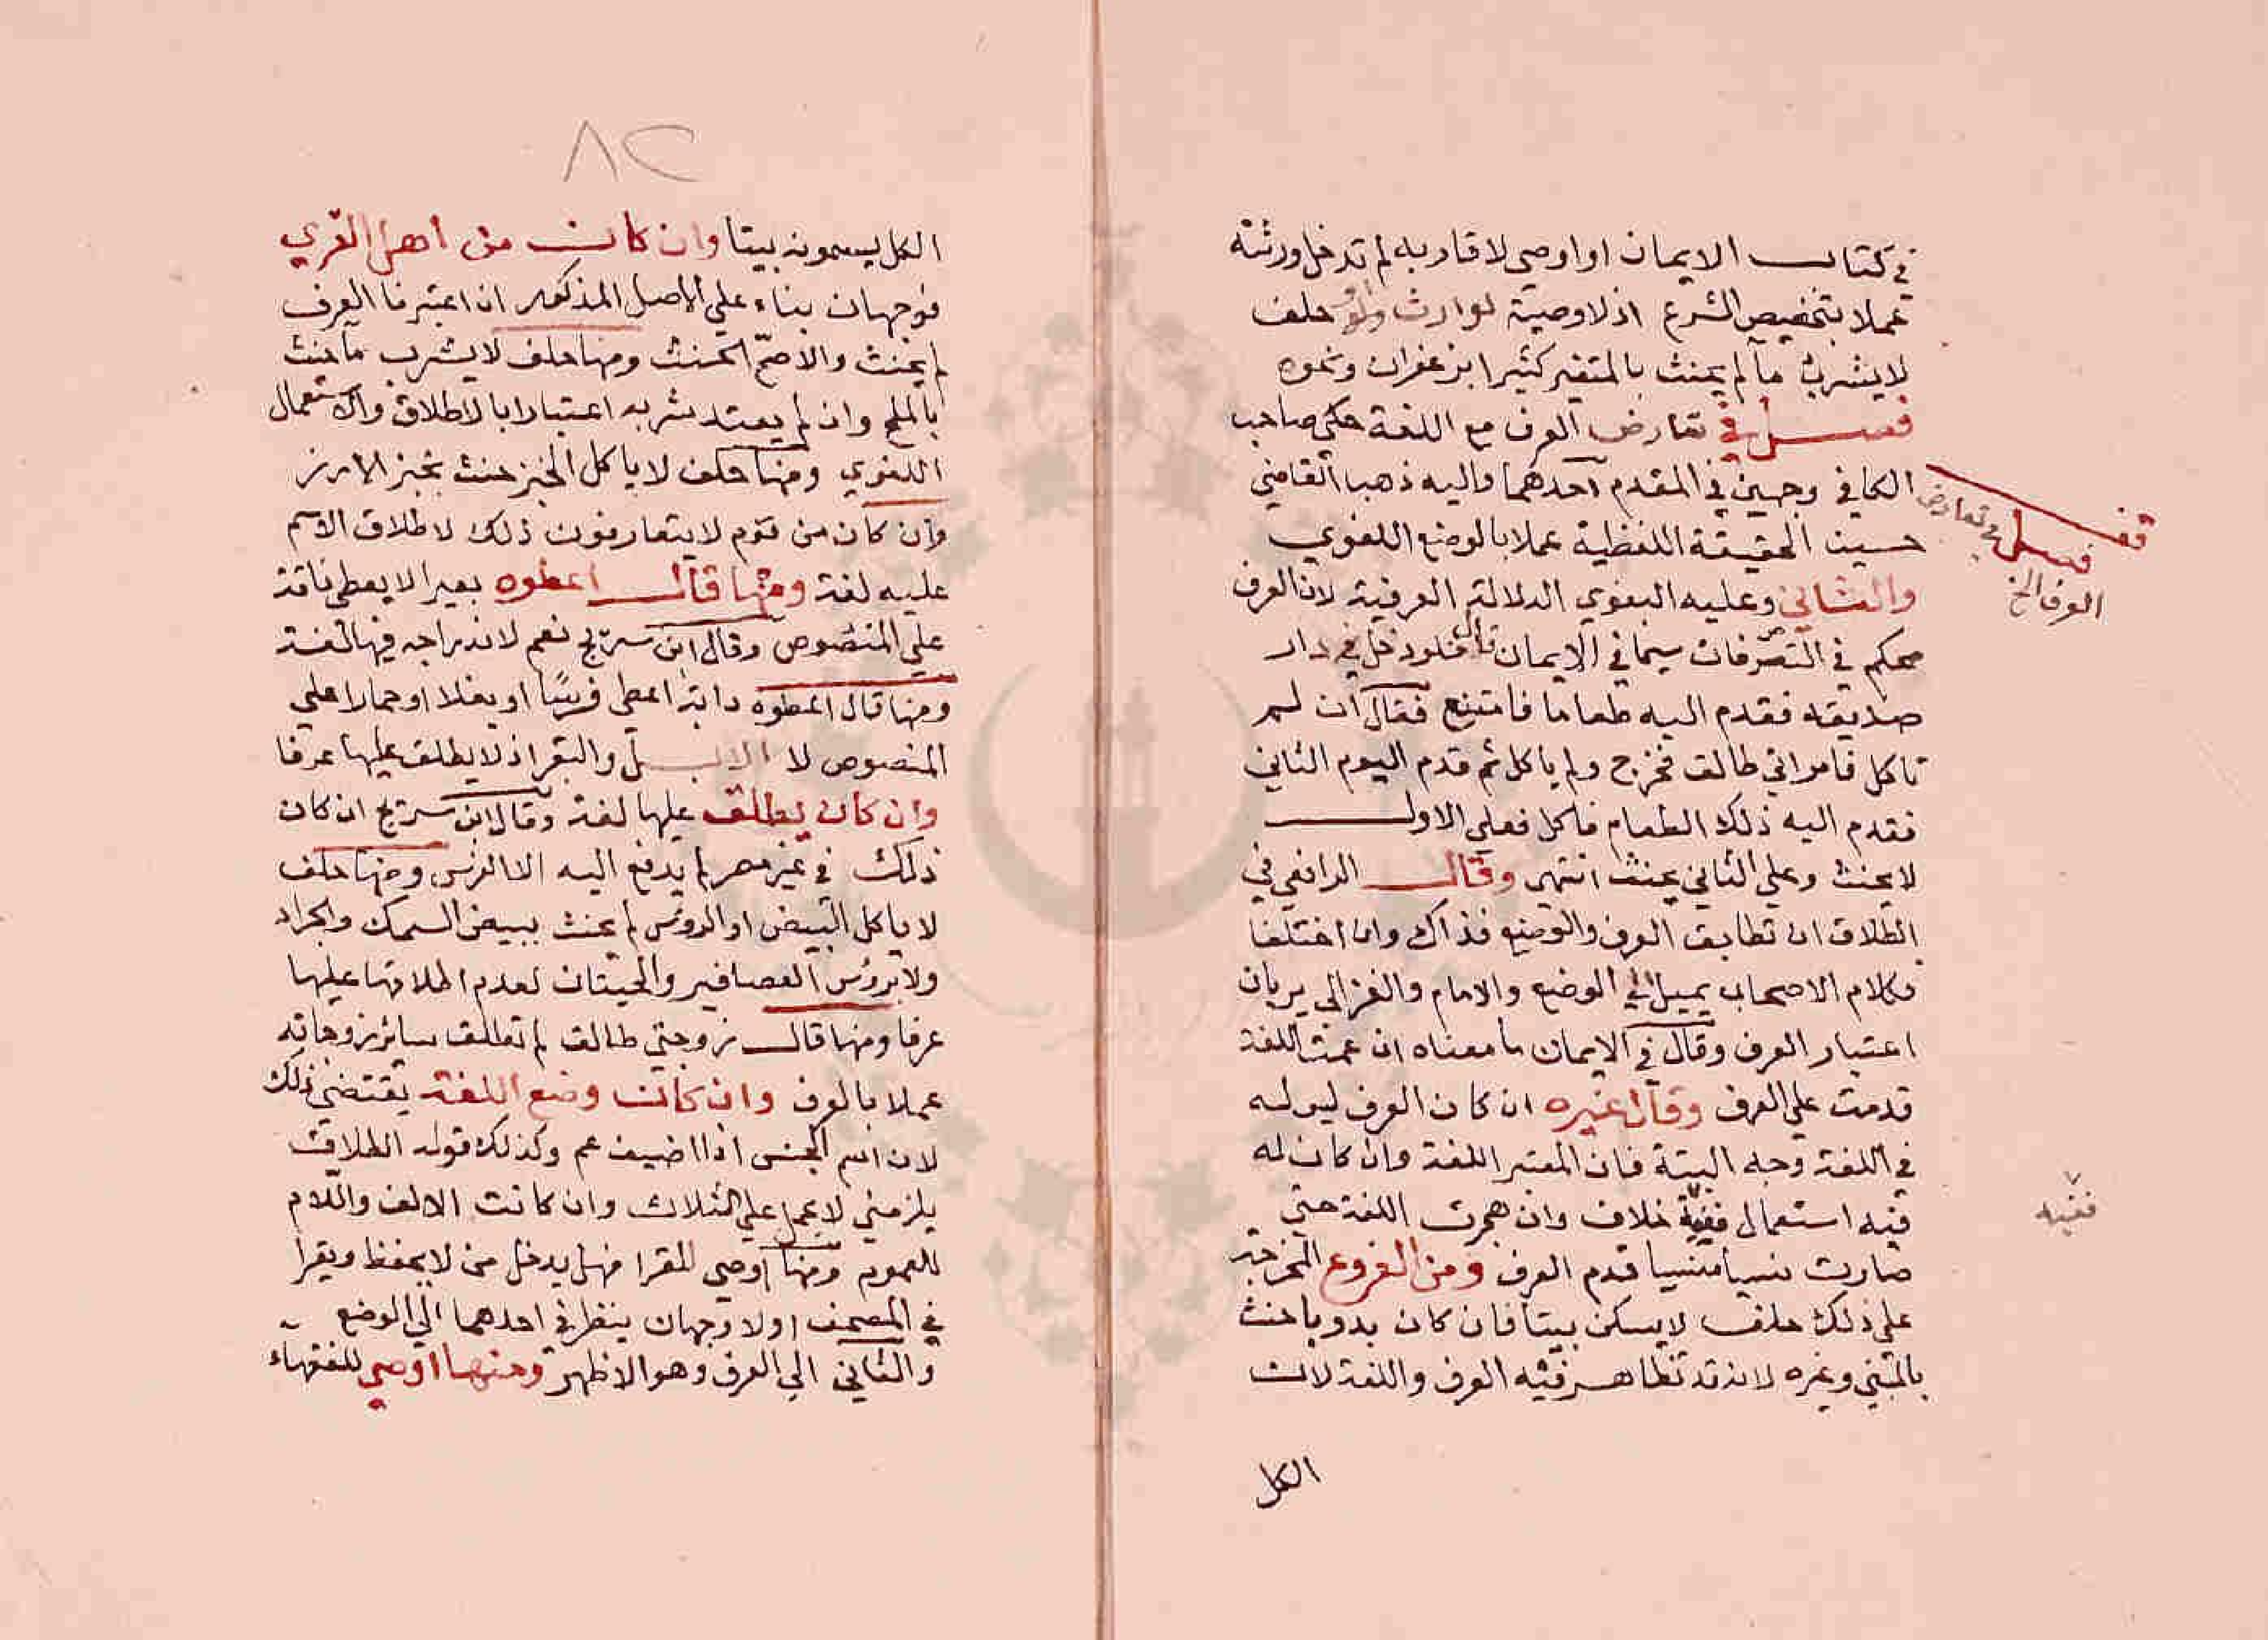 في كتاب الايمان او اوصي لاقاربه لم تدخل ورثته
عملا بتخصيص الشرع اذ لا وصية لوارث ولو حلف
لا يشرب مآ لم يحنث بالمتغير كثيرا بزعفران ونحوه
فصل في تعارض العرف مع اللغة حكي صاحب
الكافي وجهين في المقدم احدهما واليه ذهب القاضي
حسين الحقيقة اللفظية عملا بالوضع اللغوي
والثاني وعليه البغوي الدلالة العرفية لان العرف
محكم في التصرفات سيما في الايمان قال فلو دخل في دار
صديقه فقدم اليه طعاما فامتنع فقال ان لم
تاكل فامراتي طالق فخرج ولم ياكل ثم قدم اليوم الثاني
فقدم اليه ذلك الطعام فاكل فعلي الاول
لا يحنث وعلي الثاني يحنث انتهي وقال الرافعي في
الطلاق ان تطابق العرف والوضع فذاك وان اختلفا
فكلام الاصحاب يميل الي الوضع والامام والغزالي يريان
اعتبار العرف وقال في الايمان ما معناه ان عمت اللغة
قدمت علي العرف وقال غيره ان كان العرف ليس له
في اللغة وجه البتة فان المعتبر اللغة وان كان له
فيه استعمال ففيه خلاف وان هجرت اللغة حتي
صارت نسيا منسيا قدم العرف ومن الفروع المخرجة
علي ذلك حلف لا يسكن بيتا فان كان بدويا حنث
بالمبني وغيره لانه قد تظاهر فيه العرف واللغة لان
الكل
قف
فصل في تعارض
العرف الخ
ففيه
٨٢
الكل يسمونه بيتا وان كان من اهل القري
فوجهان بناء علي الاصل المذكور ان اعتبرنا العرف
لم يحنث والاصح الحنث ومنها حلف لا يشرب مآ حنث
بالملح وان لم يعتد شربه اعتبارا بالاطلاق والاستعمال
اللغوي ومنها حلف لا ياكل الخبز حنث بخبز الارز
وان كان من قوم لا يتعارفون ذلك لاطلاق الاسم
عليه لغة ومنها قال اعطوه بعيرا لا يعطي ناقة
علي المنصوص وقال ابن سريج نعم لاندراجه فيها لغة
ومنها قال اعطوه دابة اعطي فرسا او بغلا او حمارا علي
المنصوص لا الابل والبقر اذ لا يطلق عليها عرفا
وان كان يطلق عليها لغة وقال ابن سريج ان كان
ذلك في غير مصر لم يدفع اليه الا الفرس ومنها حلف
لا ياكل البيض او الروس لم يحنث ببيض السمك والجراد
ولا بروس العصافير والحيتان لعدم اطلاقها عليها
عرفا ومنها قال زوجتي طالق لم تطلق سائر زوجاته
عملا بالعرف وان كانت وضع اللغة يقتضي ذلك
لان اسم الجنس اذا اضيف عم وكذلك قوله الطلاق
يلزمني لا يحمل علي الثلاث وان كانت الالف واللام
للعموم ومنها اوصي للقرا فهل يدخل من لا يحفظ ويقرا
في المصحف اولا وجهان ينظر في احدهما الي الوضع
والثاني الي العرف وهو الاظهر ومنها اوصي للفقهاء